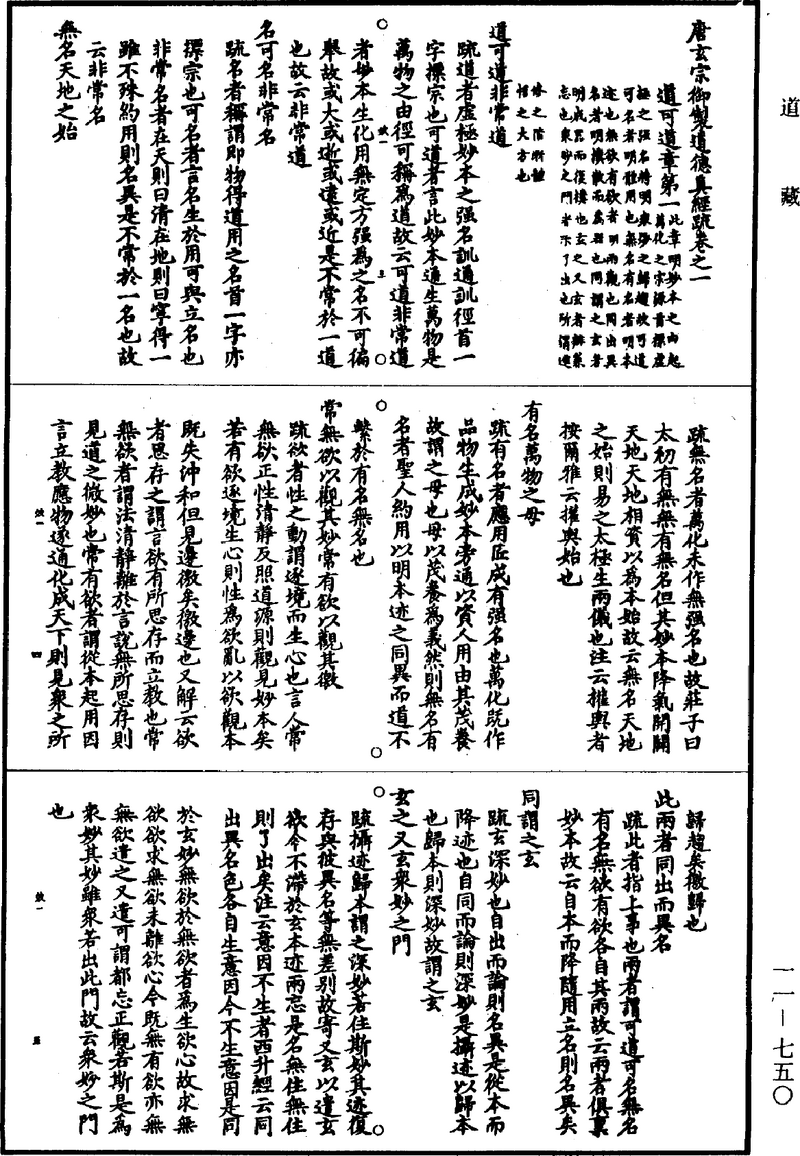 道藏
唐玄宗御製道德真經疏卷之一
道可道章第一
此章明妙本之由起
萬化之宗源首標虛
極之強名將明衆妙之歸趣故可道
可名者明體用也無名有名者明本
迹也無欲有欲者明兩觀也同出異
名者明樸散而爲器也同謂之玄者
明成器而復樸也玄之又玄者辯兼
忘也衆妙之門者示了出也所謂進
修之階漸體
悟之大方也
道可道非常道
疏道者虛極妙本之强名訓通訓徑首一
字標宗也可道者言此妙本通生萬物是
萬物之由徑可稱爲道故云可道非常道
者妙本生化用無定方强爲之名不可徧
舉故或大或逝或遠或近是不常於一道
也故云非常道
名可名非常名
疏名者稱謂即物得道用之名首一字亦
標宗也可名者言名生於用可與立名也
非常名者在天則曰清在地則曰寧得一
雖不殊約用則名異是不常於一名也故
云非常名
無名天地之始
疏無名者萬化未作無强名也故莊子曰
太初有無無有無名但其妙本降氣開闢
天地天地相資以爲本始故云無名天地
之始則易之太極生兩儀也注云攉輿者
按爾雅云攉輿始也
有名萬物之母
疏有名者應用匠成有强名也萬化既作
品物生成妙本旁通以資人用由其茂養
故謂之母也母以茂養爲義然則無名有
名者聖人約用以明本迹之同異而道不
繫於有名無名也
常無欲以觀其妙常有欲以觀其徼
疏欲者性之動謂逐境而生心也言人常
無欲正性清靜反照道源則觀見妙本矣
若有欲逐境生心則性爲欲亂以欲觀本
既失沖和但見邊徼矣徼邊也又解云欲
者思存之謂言欲有所思存而立教也常
無欲者謂法清靜離於言說無所思存則
見道之微妙也常有欲者謂從本起用因
言立教應物遂通化成天下則見衆之所
歸趨矣徼歸也
此兩者同出而異名
疏此者指上事也兩者謂可道可名無名
有名無欲有欲各自其兩故云兩者俱禀
妙本故云自本而降隨用立名則名異矣
同謂之玄
疏玄深妙也自出而論則名異是從本而
降迹也自同而論則深妙是攝迹以歸本
也歸本則深妙故謂之玄
玄之又玄衆妙之門
疏攝迹歸本謂之深妙若住斯妙其迹復
存與彼異名等無差別故寄又玄以遣玄
欲令不滯於玄本迹兩忘是名無住無住
則了出矣注云意因不生者西升經云同
出異名色各自生意因今不生意因是同
於玄妙無欲於無欲者爲生欲心故求無
欲欲求無欲未離欲心今既無有欲亦無
無欲遣之又遣可謂都忘正觀若斯是爲
衆妙其妙雖衆若出此門故云衆妙之門
也
一一—七五〇